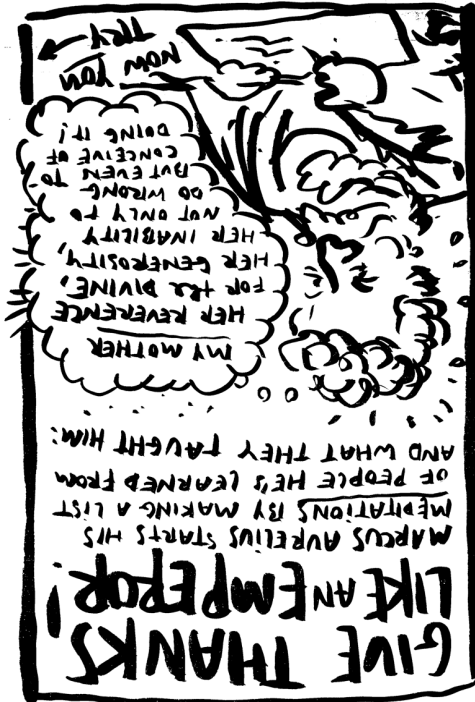 GIVE THANKS
LIKE AN EMPEROR!
MARCUS AURELIUS STARTS HIS
MEDITATIONS BY MAKING A LIST
OF PEOPLE HE'S LEARNED FROM
AND WHAT THEY TAUGHT HIM:
MY MOTHER
HER REVERENCE
FOR THE DIVINE,
HER GENEROSITY,
HER INABILITY
NOT ONLY TO
DO WRONG
BUT EVEN TO
CONCEIVE OF
DOING IT!
NOW YOU
TRY